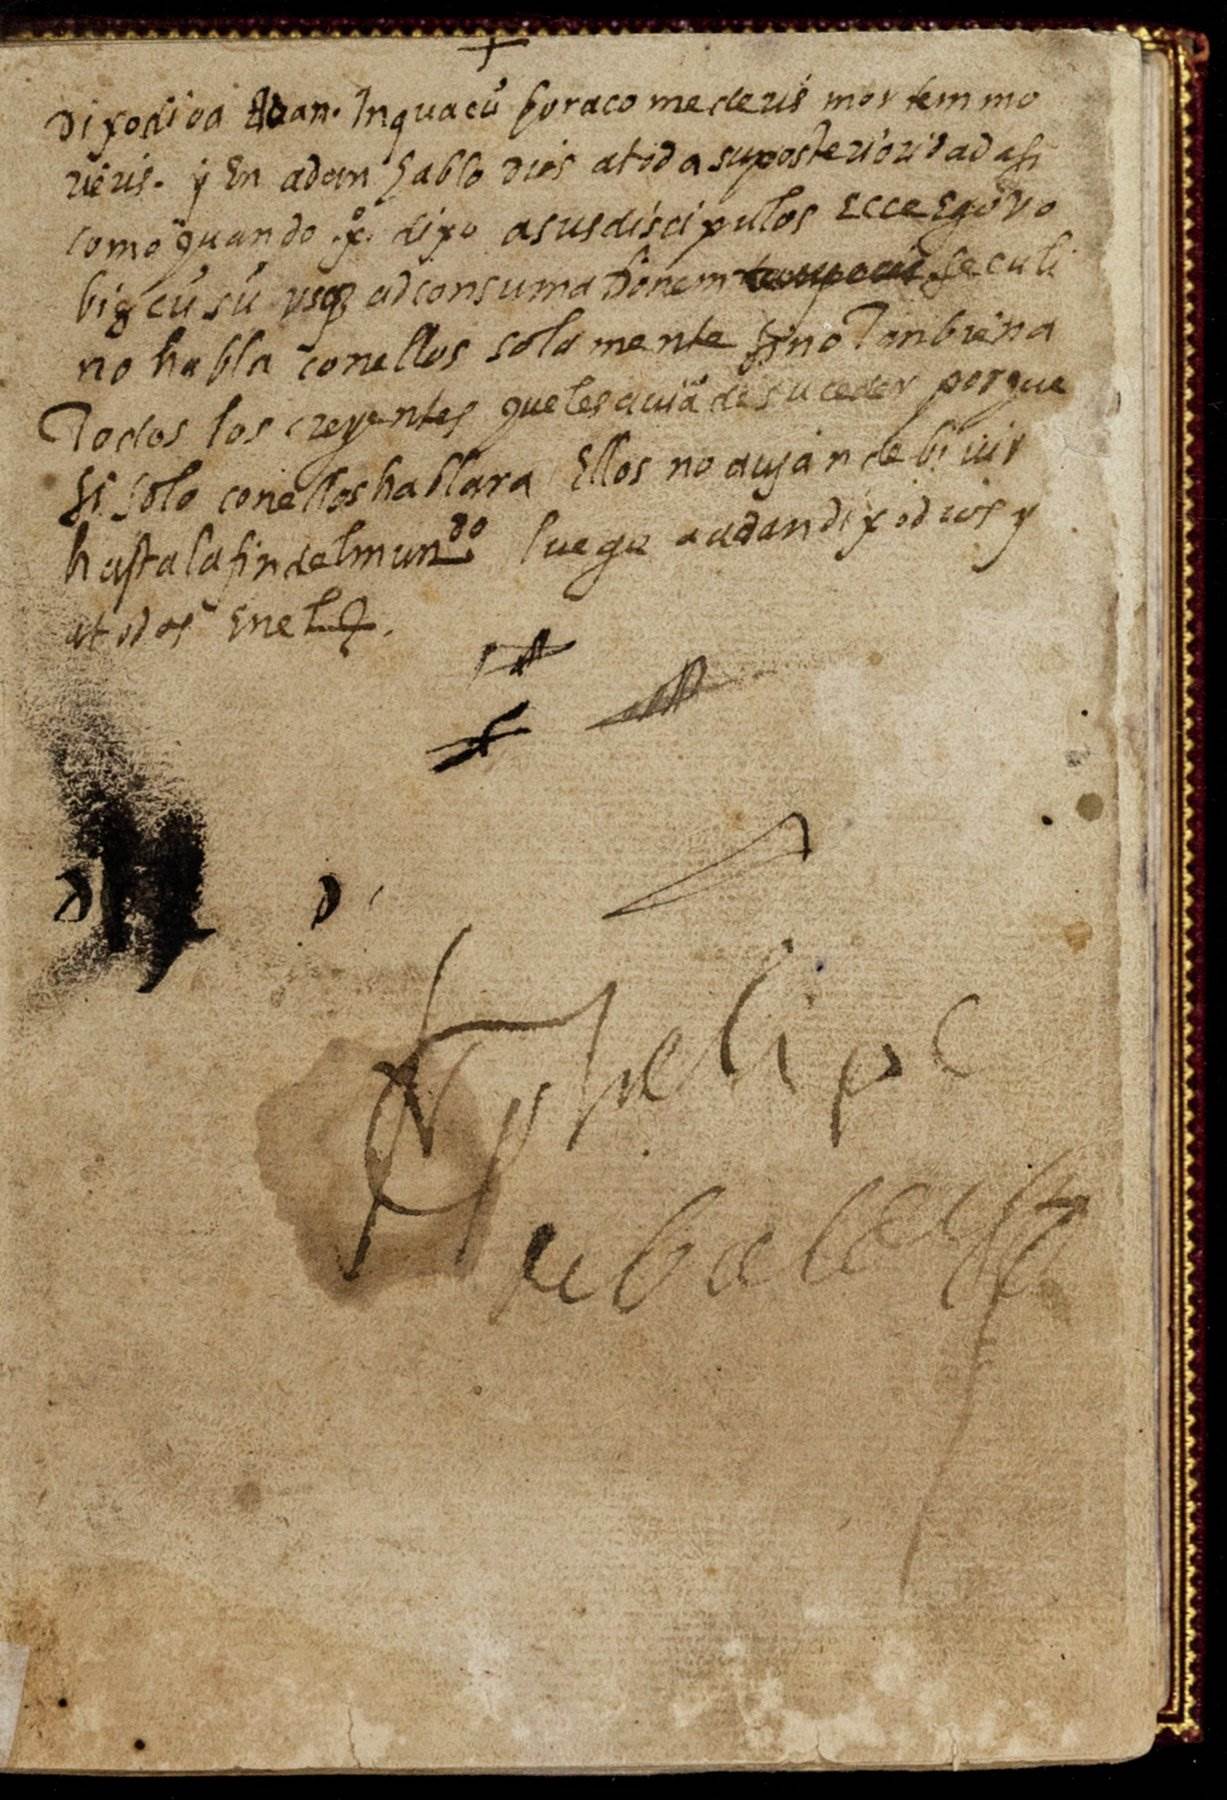 +
Dixo dios a Adan. In quacũ hora comederis mortem mo
riẽris. y En adan hablo dios atoda su posterioridad asi
como quando .xº. dixo asus discipulos Ecce Ego vo
biscũ sũ vsqz ad consumationem seculi
no habla conellos sola mente sino Tanbiẽn a
Todos los creyentes que les auiã de suceder porque
si solo conellos hablara Ellos no auian de biuir
hasta la fin del mundo luego a adan dixo dios y
atodos Enel
D
D
Phelipe
de